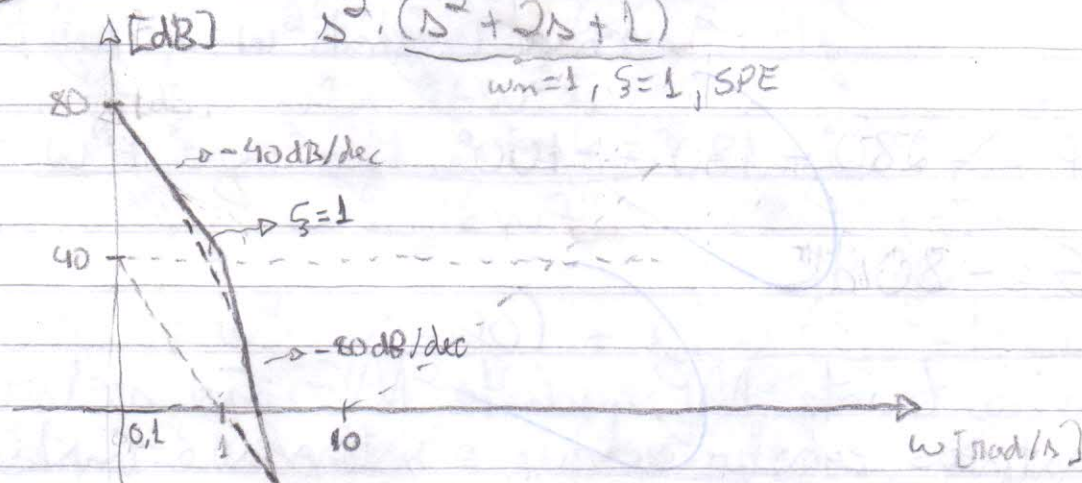 [dB] s². (s² + 2s + 1)
wn=1, ξ=1, SPE
80
-40dB/dec
ξ=1
40
-80dB/dec
0,1 1 10
w [rad/s]